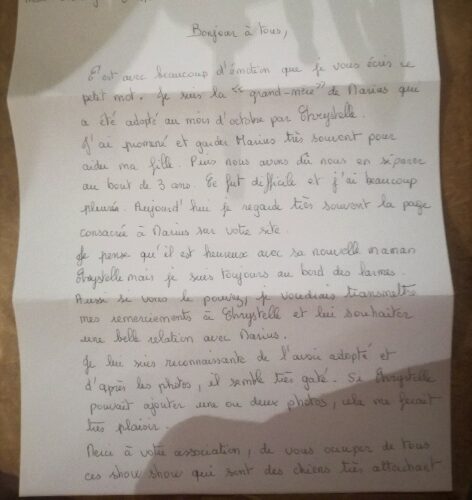 Bonjour à tous,
C'est avec beaucoup d'émotion que je vous écris ce
petit mot. Je suis la "grand-mère" de Marius qui
a été adopté au mois d'octobre par Chrystelle.
J'ai promené et garder Marius très souvent pour
aider ma fille. Puis nous avons dû nous en séparer
au bout de 3 ans. Ce fut difficile et j'ai beaucoup
pleurée. Aujourd'hui je regarde très souvent la page
consacrée à Marius sur votre site.
Je pense qu'il est heureux avec sa nouvelle maman
Chrystelle mais je suis toujours au bord des larmes.
Aussi si vous le pouvez, je voudrais transmettre
mes remerciements à Chrystelle et lui souhaiter
une belle relation avec Marius.
Je lui suis reconnaissante de l'avoir adopté et
d'après les photos, il semble très gaté. Si Chrystelle
pouvait ajouter une ou deux photos, cela me ferait
très plaisir.
Merci à votre association, de vous occuper de tous
ces show show qui sont des chiens très attachant